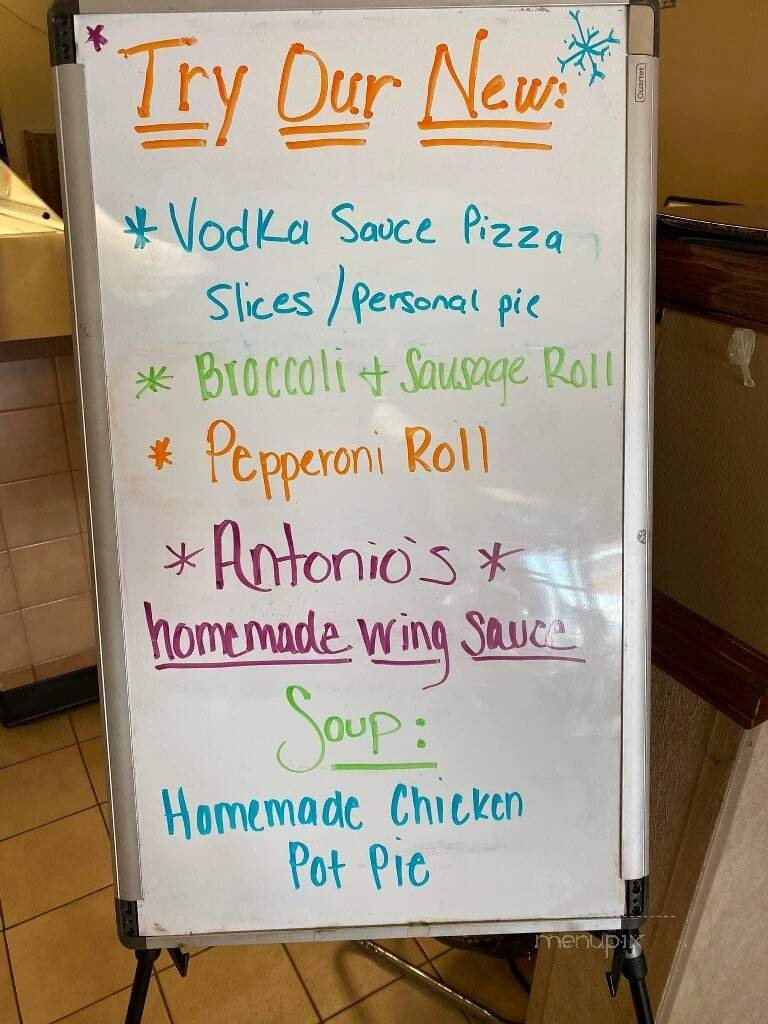 Try Our New:
Quartet
* Vodka Sauce Pizza
Slices / personal pie
* Broccoli + Sausage Roll
* Pepperoni Roll
* Antonio's *
homemade wing sauce
Soup:
Homemade Chicken
Pot Pie
menupix